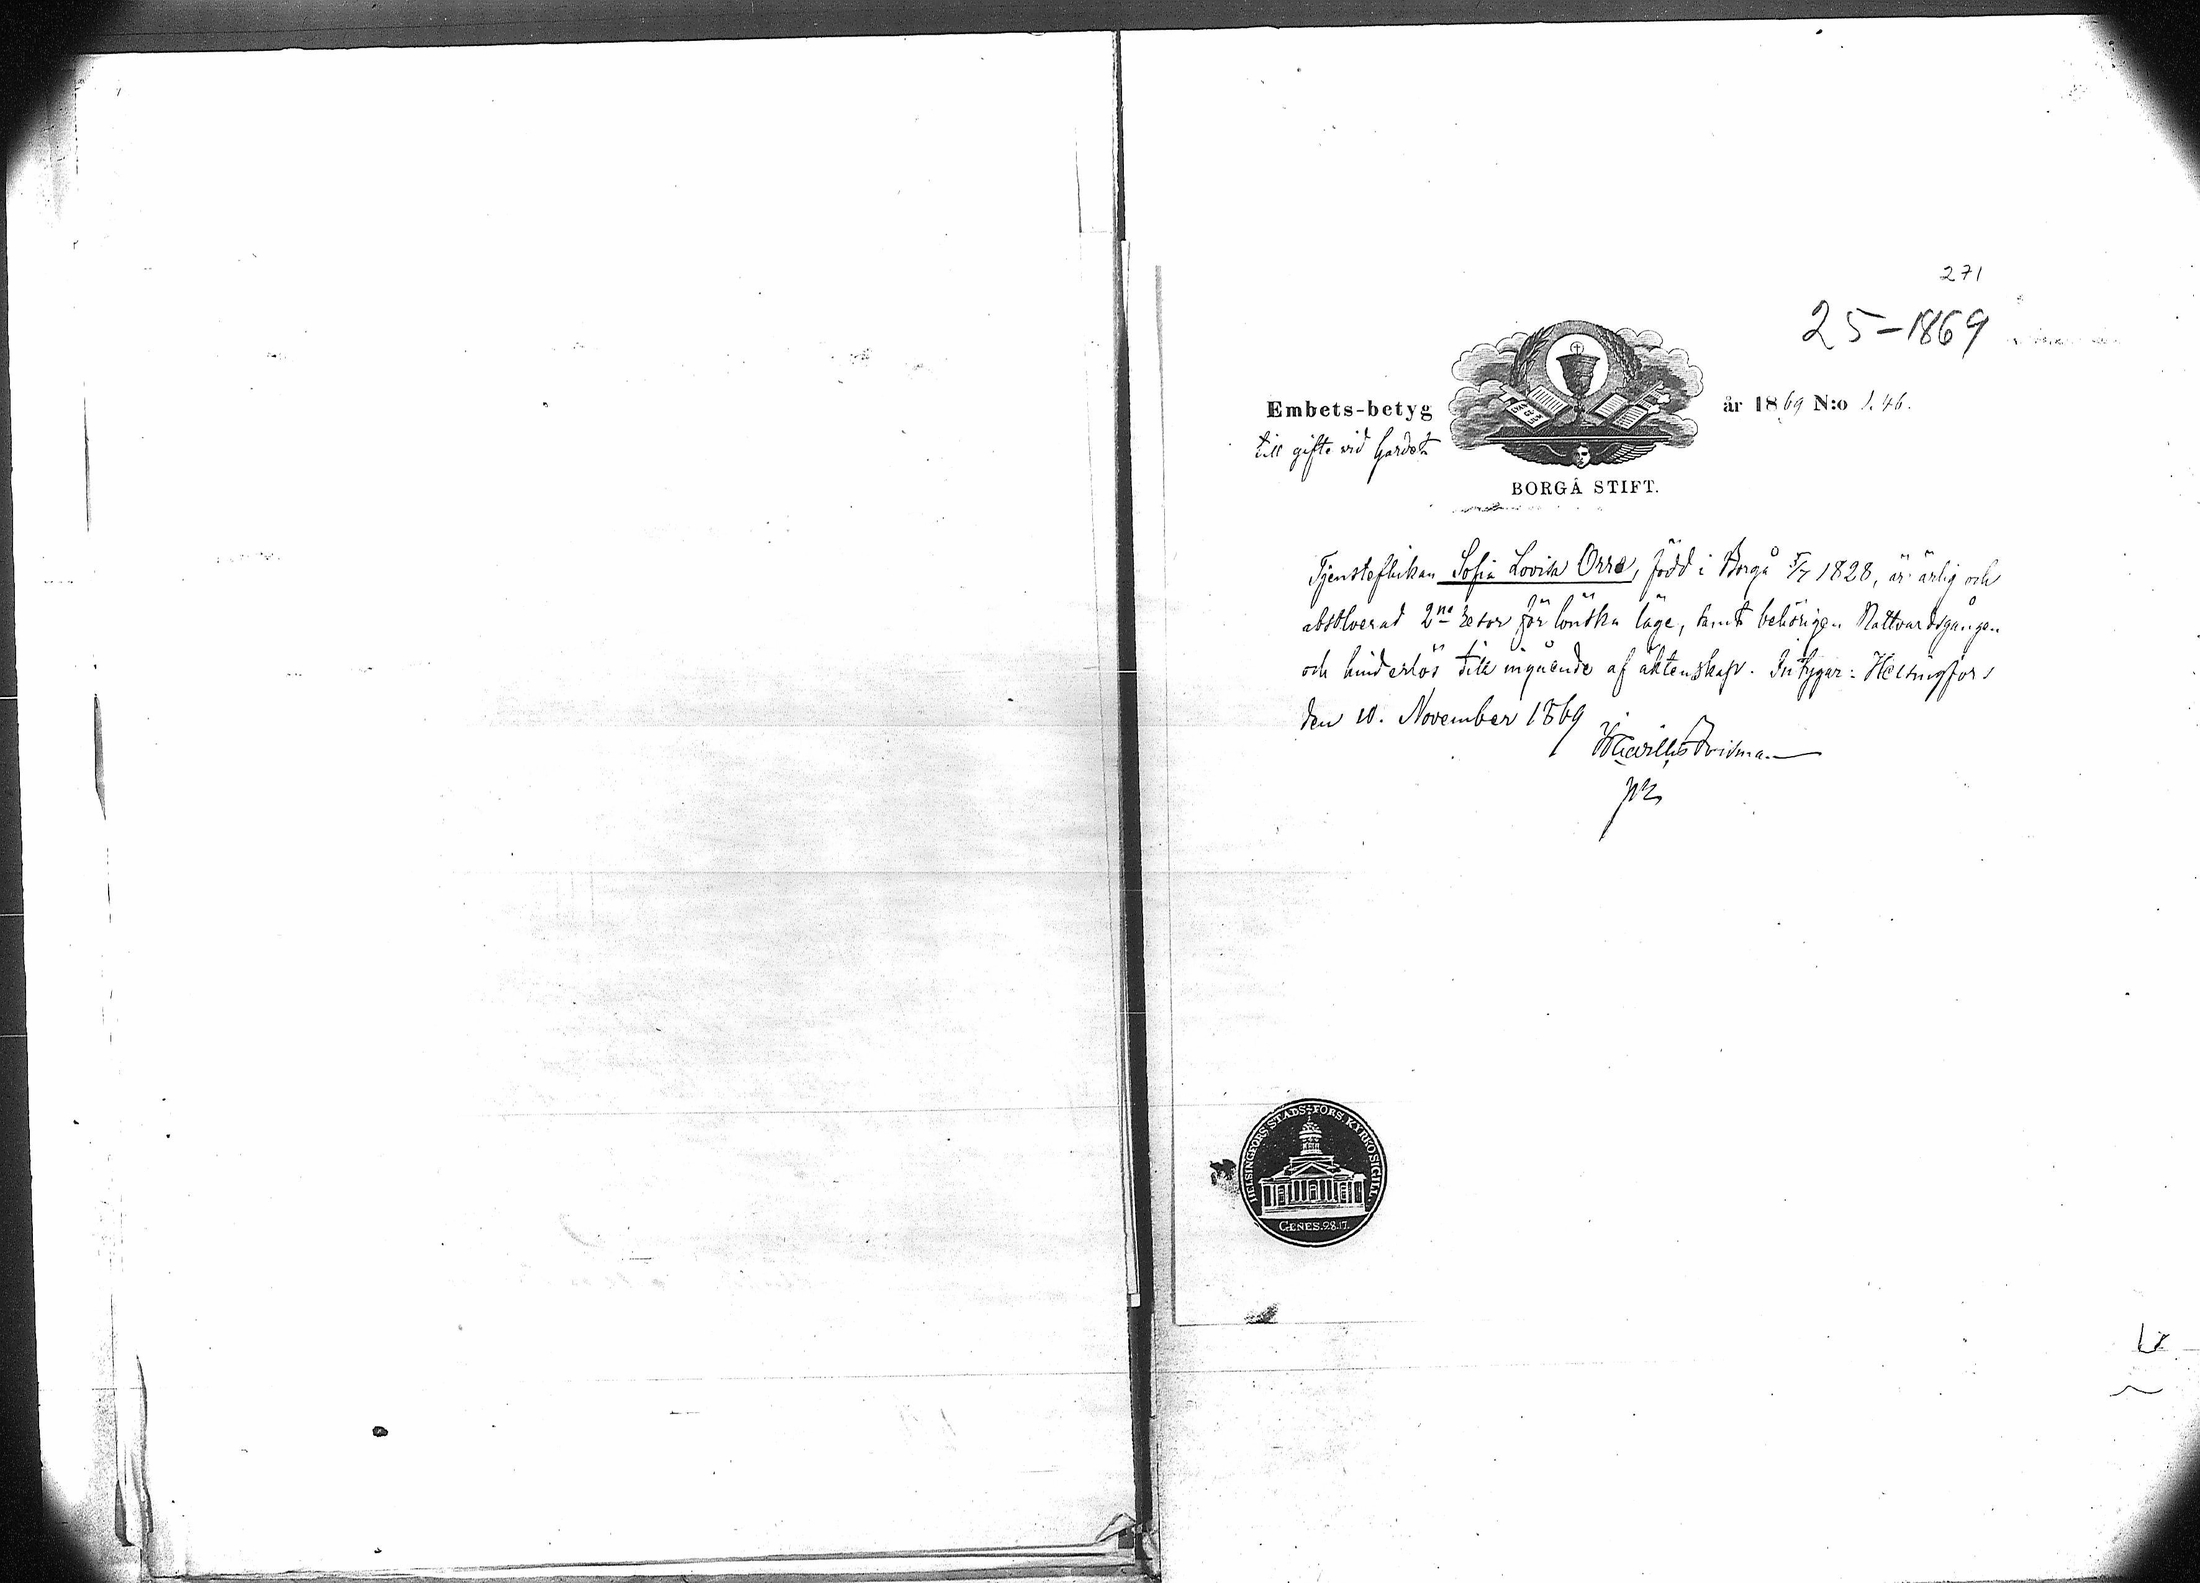 271
25-1869
Embets-betyg
år 1869 N:o 1.46.
till gifte vid Gardet
BORGÅ STIFT.
Tjensteflickan Sofia Lovisa Orre, född i Borgå 5/7 1828, är ärlig och
absolverad 2ne resor för lönska läge, samt behörigen Nattvardsgången
och hinderlös till ingående af äktenskap. Intygar: Helsingfors
den 10. November 1869
HELSINGFORS STADS-FÖRS. KYRKOSIGILL.
GENES. 28.17.